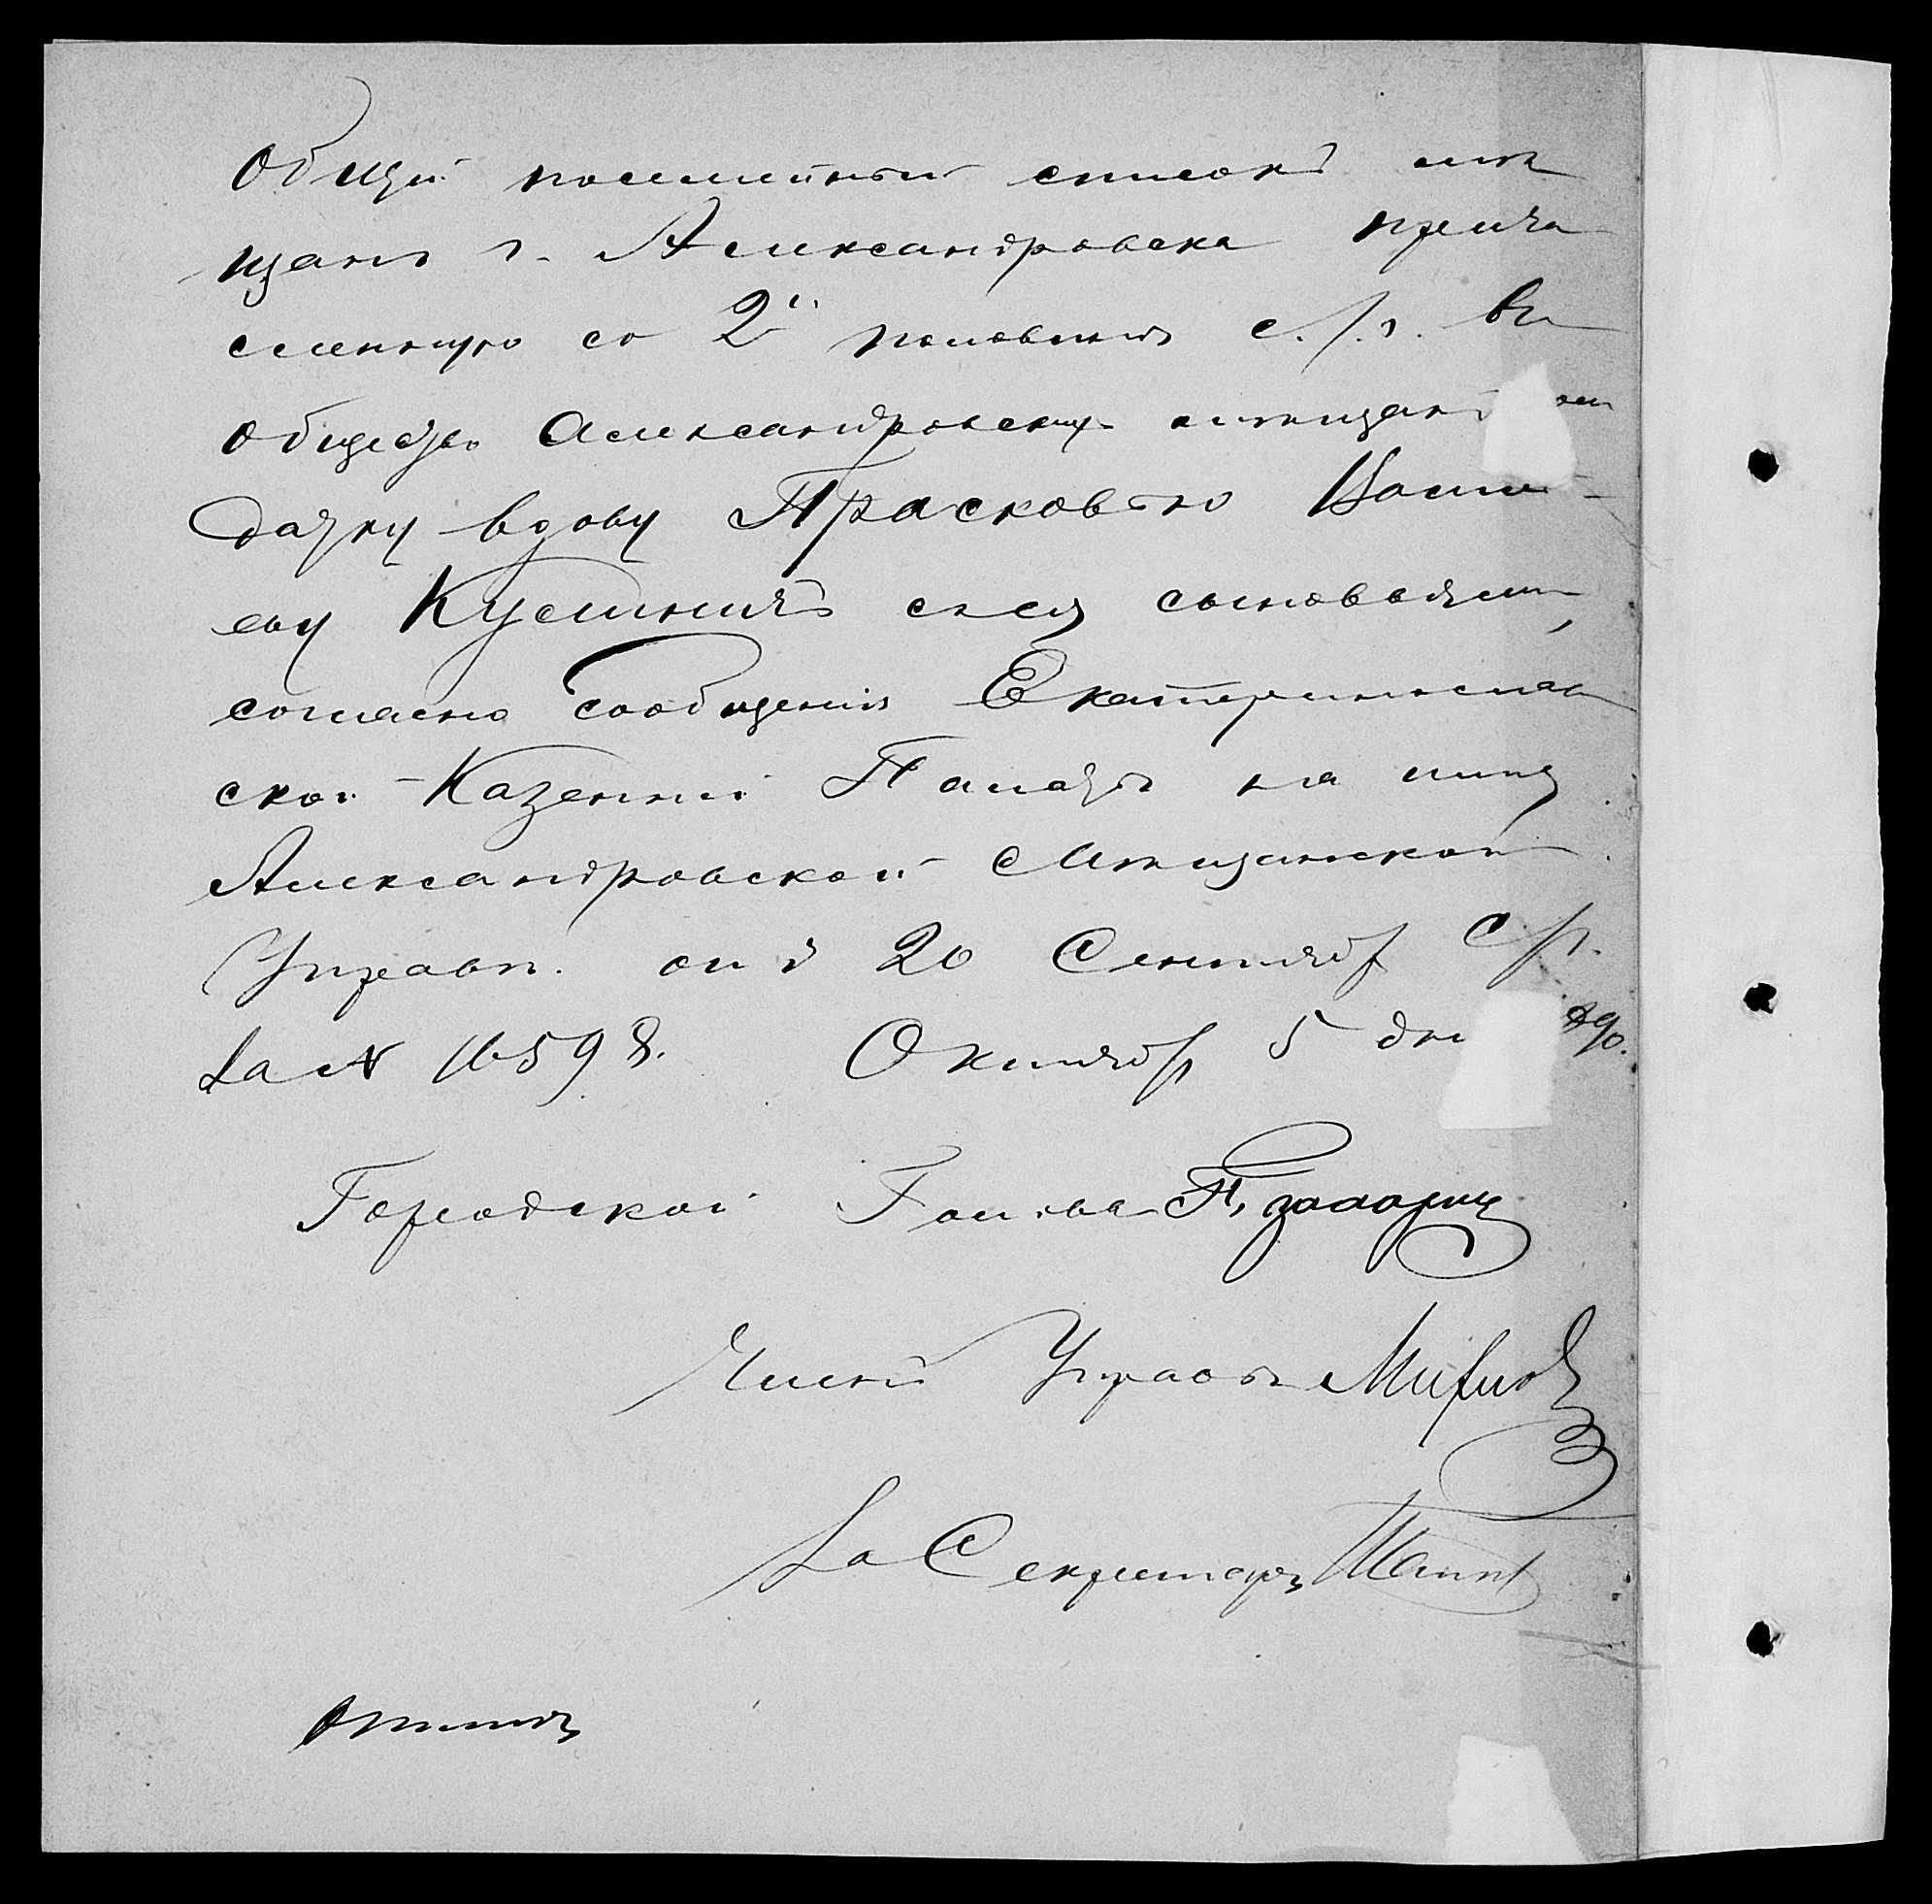 Общій посемейный списокъ мѣ
щанъ г. Александровска причи
сленную со 2й половины с./г. въ
общество Александровскихъ мѣщанъ
датку вдову Прасковью
еву съ ея сыновьями,
согласно сообщенія Екатеринослав
ской Казенной Палаты на имя
Александровской Мѣщанской
Управы. отъ 20 Сентября с/г.
За № 16598. Октября 5 дня 1890.
Городской Голова П.
Членъ Управы
За Секретаря